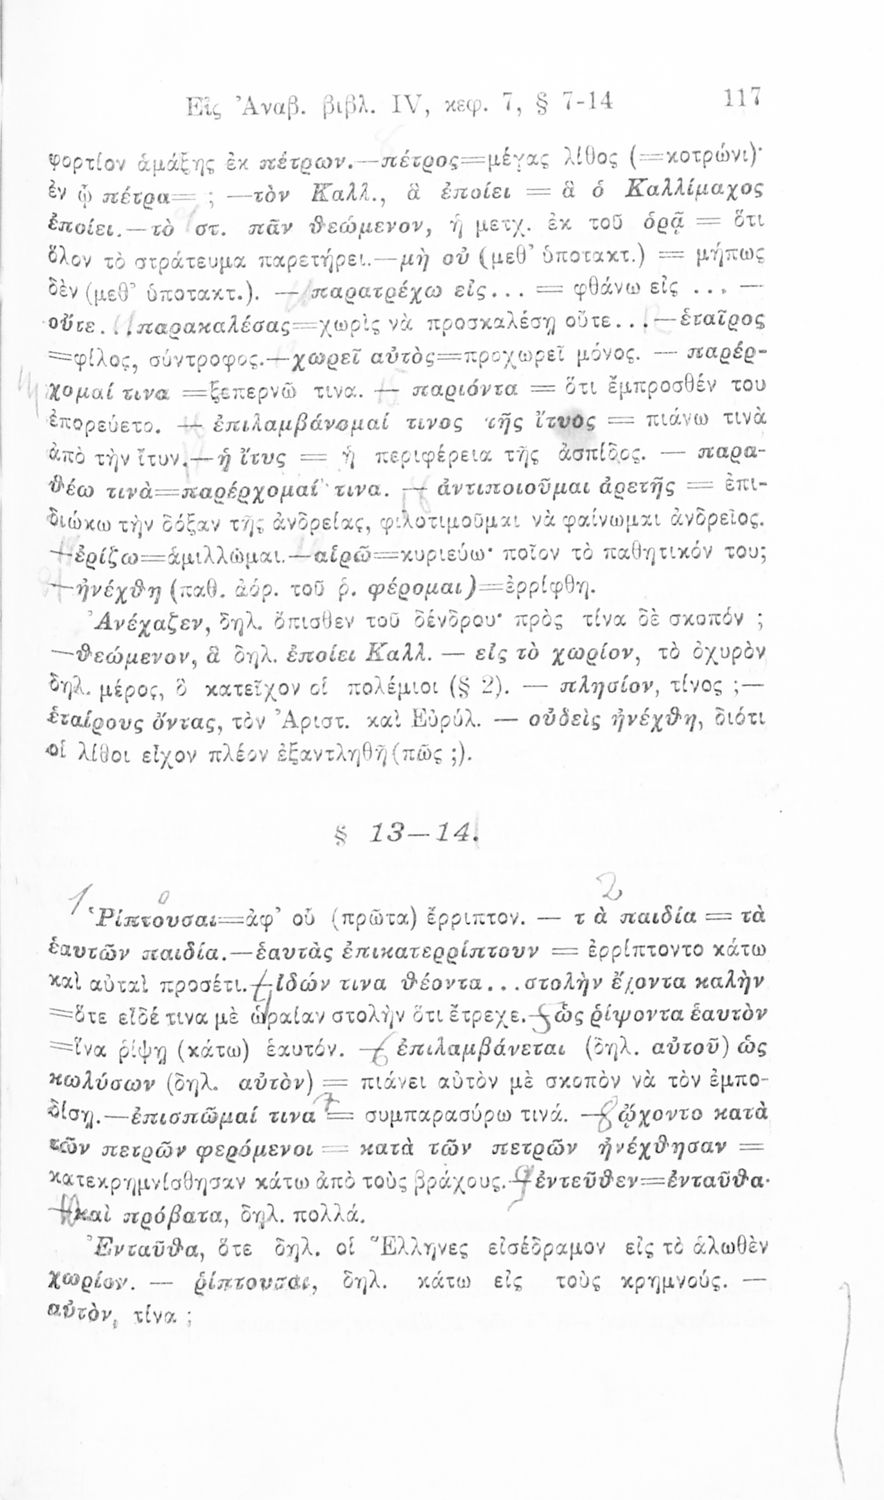 Εἰς Ἀναβ. βιβλ. IV, κεφ. 7, § 7-14 117
φορτίον ἁμάξης ἐκ πέτρων.—πέτρος=μέγας λίθος (=κοτρώνι)·
ἐν ᾧ πέτρα= ; —τὸν Καλλ., ἃ ἐποίει = ἃ ὁ Καλλίμαχος
ἐποίει.—τὸ στ. πᾶν θεώμενον, ἡ μετχ. ἐκ τοῦ ὁρᾷ = ὅτι
ὅλον τὸ στράτευμα παρετήρει.—μὴ οὐ (μεθ' ὑποτακτ.) = μήπως
δὲν (μεθ' ὑποτακτ.). — παρατρέχω εἰς... = φθάνω εἰς ... —
οὔτε. . . παρακαλέσας=χωρὶς νὰ προσκαλέσῃ οὔτε...—ἑταῖρος
=φίλος, σύντροφος.—χωρεῖ αὐτὸς=προχωρεῖ μόνος. — παρέρ-
χομαί τινα =ξεπερνῶ τινα. — παριόντα = ὅτι ἔμπροσθέν του
ἐπορεύετο. — ἐπιλαμβάνομαί τινος τῆς ἴτυος = πιάνω τινὰ
ἀπὸ τὴν ἴτυν.—ἡ ἴτυς = ἡ περιφέρεια τῆς ἀσπίδος. — παρα-
θέω τινὰ=παρέρχομαί τινα. — ἀντιποιοῦμαι ἀρετῆς = ἐπι-
διώκω τὴν δόξαν τῆς ἀνδρείας, φιλοτιμοῦμαι νὰ φαίνωμαι ἀνδρεῖος.
—ἐρίζω=ἁμιλλῶμαι.—αἱρῶ=κυριεύω· ποῖον τὸ παθητικόν του;
—ἠνέχθη (παθ. ἀόρ. τοῦ ῥ. φέρομαι)=ἐρρίφθη.
Ἀνέχαζεν, δηλ. ὄπισθεν τοῦ δένδρου· πρὸς τίνα δὲ σκοπόν ;
—θεώμενον, ἃ δηλ. ἐποίει Καλλ. — εἰς τὸ χωρίον, τὸ ὀχυρὸν
δηλ. μέρος, ὃ κατεῖχον οἱ πολέμιοι (§ 2). — πλησίον, τίνος ;—
ἑταίρους ὄντας, τὸν Ἀριστ. καὶ Εὐρύλ. — οὐδεὶς ἠνέχθη, διότι
οἱ λίθοι εἶχον πλέον ἐξαντληθῆ (πῶς ;).
§ 13—14.
1 2
Ῥίπτουσαι=ἀφ' οὗ (πρῶτα) ἔρριπτον. — τὰ παιδία = τὰ
ἑαυτῶν παιδία.—ἑαυτὰς ἐπικατερρίπτουν = ἐρρίπτοντο κάτω
καὶ αὐταὶ προσέτι.—ἰδών τινα θέοντα...στολὴν ἔχοντα καλὴν
=ὅτε εἶδέ τινα μὲ ὡραίαν στολὴν ὅτι ἔτρεχε.—ὡς ῥίψοντα ἑαυτὸν
=ἵνα ῥίψῃ (κάτω) ἑαυτόν. — ἐπιλαμβάνεται (δηλ. αὐτοῦ) ὡς
κωλύσων (δηλ. αὐτὸν) = πιάνει αὐτὸν μὲ σκοπὸν νὰ τὸν ἐμπο-
δίσῃ.—ἐπισπῶμαί τινα = συμπαρασύρω τινά. — ᾤχοντο κατὰ
τῶν πετρῶν φερόμενοι = κατὰ τῶν πετρῶν ἠνέχθησαν =
κατεκρημνίσθησαν κάτω ἀπὸ τοὺς βράχους.—ἐντεῦθεν=ἐνταῦθα·
—καὶ πρόβατα, δηλ. πολλά.
Ἐνταῦθα, ὅτε δηλ. οἱ Ἕλληνες εἰσέδραμον εἰς τὸ ἁλωθὲν
χωρίον. — ῥίπτουσαι, δηλ. κάτω εἰς τοὺς κρημνούς. —
αὐτὸν, τίνα ;